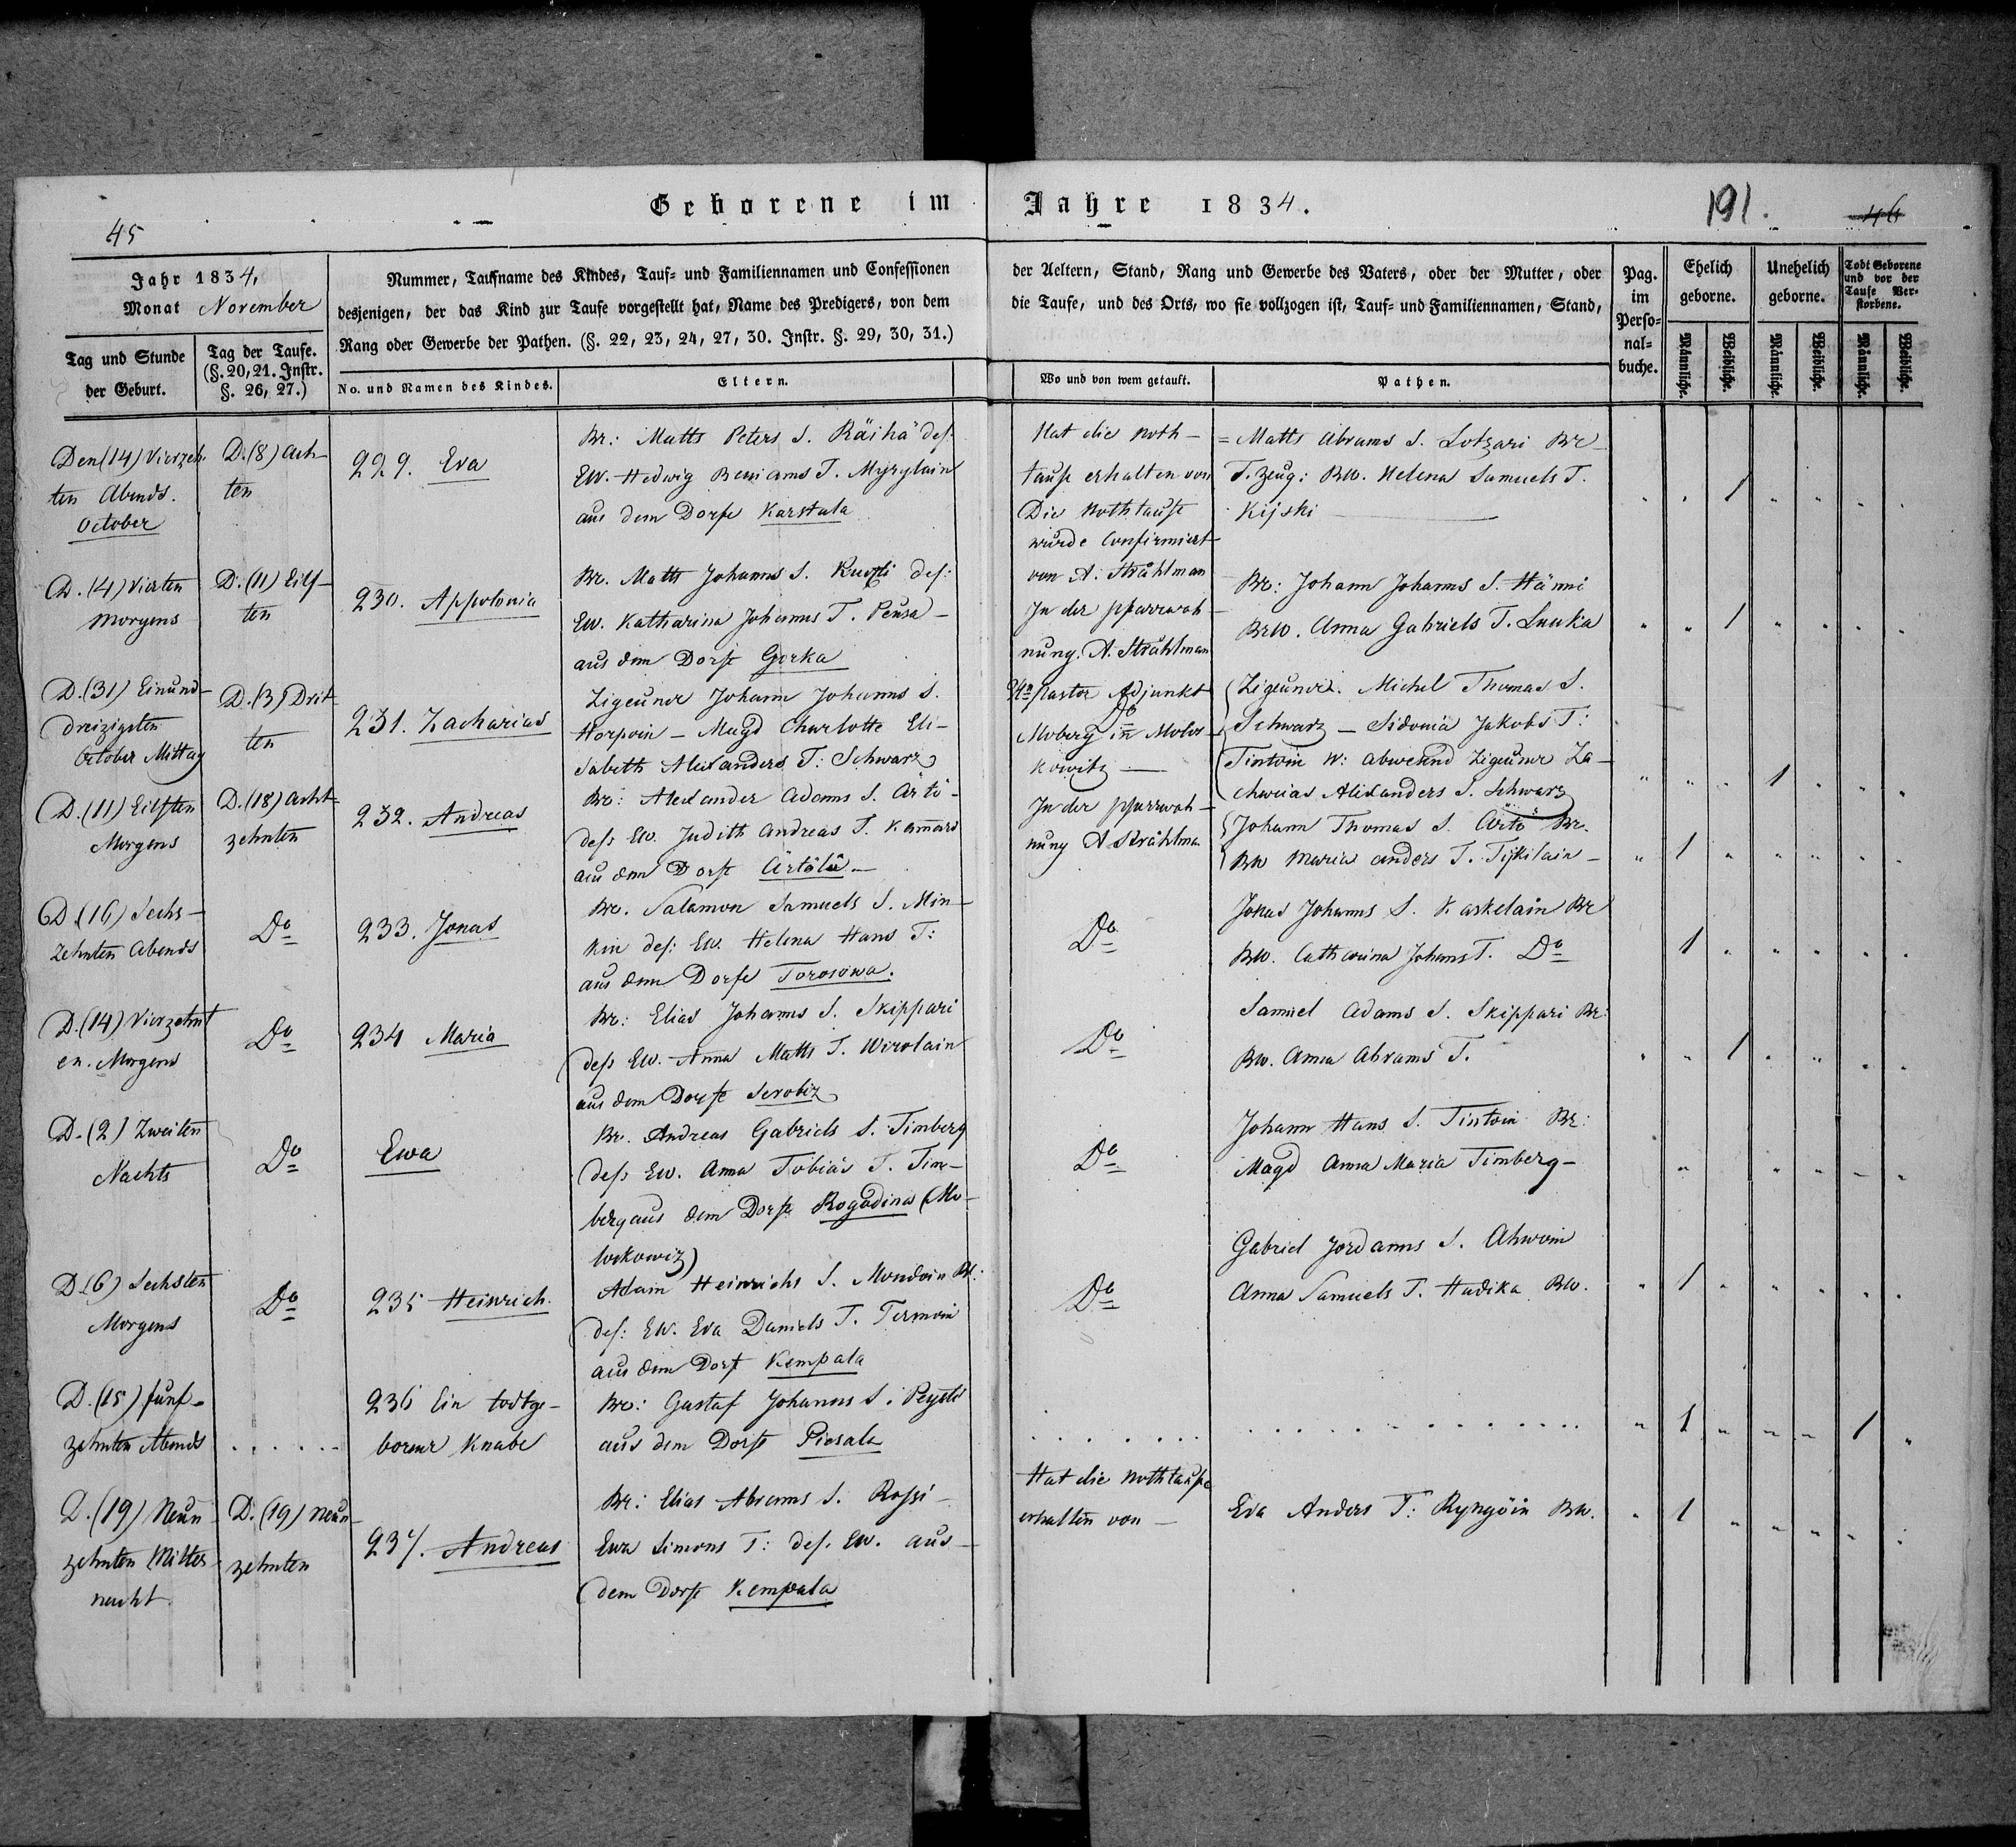 Geborene im Jahre 1834.
45
191.
146
Jahr 1834,
Monat November
Tag und Stunde
der Geburt.
Tag der Taufe.
(§. 20, 21. Instr.
§. 26, 27.)
Nummer, Taufname des Kindes, Tauf- und Familiennamen und Confessionen
der Aeltern, Stand, Rang und Gewerbe des Vaters, oder der Mutter, oder
desjenigen, der das Kind zur Taufe vorgestellt hat, Name des Predigers, von dem
die Taufe, und des Orts, wo sie vollzogen ist, Tauf- und Familiennamen, Stand,
Rang oder Gewerbe der Pathen. (§. 22, 23, 24, 27, 30. Instr. §. 29, 30, 31.)
No. und Namen des Kindes.
Eltern.
Wo und von wem getauft.
Pathen.
Pag.
im
Perso-
nal-
buche.
Ehelich
geborne.
Unehelich
geborne.
Todt Geborene
und vor der
Taufe Ver-
storbene.
Männliche.
Weibliche.
Männliche.
Weibliche.
Männliche.
Weibliche.
Den (14) Vierzeh-
ten Abends.
October
D. (8) Ach-
ten
229. Eva
Br: Matts Peters S. Räihä des
EW. Hedwig Benjams T. Myrylain
aus dem Dorfe Karstala
Hat die Noth-
taufe erhalten von
Die Nothtaufe
wurde Confirmirt
von A. Stråhlman
= Matts Abrams S. Lotzari Br
T. Zeug: BW. Helena Samuels T.
Kijski
1
D. (4) Vierten
Morgens
D. (11) Eilf-
ten
230. Appolonia
Br. Matts Johanns S. des:
EW. Katharina Johanns T. Peusa
aus dem Dorfe Gorka
In der Pfarrwoh-
nung. A. Stråhlman
Br: Johann Johanns S. Hänni
BrW. Anna Gabriels T. Luuka
1
D. (31) Einund-
dreizigsten
October Mittag
D. (3) Drit
ten
231. Zacharias
Zigeuner Johann Johanns S.
Horpoin - Magd Charlotte Eli-
sabeth Alexanders T: Schwarz
Pastor Adjunkt
Moberg in Molos-
kowitz
Zigeuner. Michel Thomas S.
Schwarz - Sidonia Jakobs T:
Tintoin W: abwesend Zigeuner Za-
charias Alexanders S. Schwarz
1
D. (11) Eilften
Morgens
D. (18) Acht-
zehnten
232. Andreas
Br: Alexander Adams S. Ärtö-
dess EW. Judith Andreas T.
aus dem Dorfe Ärtölä
In der Pfarrwoh-
nung A Stråhlman
Johann Thomas S. Ärtö Br.
BW Maria Anders T. Tijkilain
1
D. (16) Sechs-
zehnten Abends
Do
233. Jonas
Br. Salamon Samuels S. Min-
kin des: EW. Helena Hans T:
aus dem Dorfe Torosowa.
Do
Jonas Johanns S. Kaskelain Br
BW. Catharina Johanns T. Do
1
D. (14) Vierzehnt
en. Morgens
Do
234 Maria
Br: Elias Johanns S. Skippari
dess EW. Anna Matts T. Wirolain
aus dem Dorfe Serobiz
Do
Samuel Adams S. Skippari Br:
BW. Anna Abrams T.
1
D. (2) Zweiten
Nachts
Do
Ewa
Br. Andreas Gabriels S. Timberg
dess EW. Anna Tobias T. Tim-
berg aus dem Dorfe Rogadina (Mo-
loskowiz)
Do
Johann Hans S. Tintoin Br:
Magd Anna Maria Timberg-
D. (6) Sechsten
Morgens
Do
235 Heinrich.
Adam Heinrichs S. Mondoin Br:
des: EW. Eva Daniels T. Termoin
aus dem Dorf Kempala
Do
Gabriel Jordanns S. Ahwoin
Anna Samuels T. Hudika BW.
1
D. (15) fünf-
zehnten Abends
236 Ein todtge-
borener Knabe
Br: Gustaf Johanns S.
aus dem Dorfe Piesala
1
1
D. (19) Neun
zehnten Mitter-
nacht
D. (19) Neun-
zehnten
237. Andreas
Br: Elias Abrams S. Rossi
Ewa Simons T: des. EW. aus
dem Dorfe Kempala
Hat die Nothtaufe
erhalten von
Eva Anders T: Ryngöin BW.
1